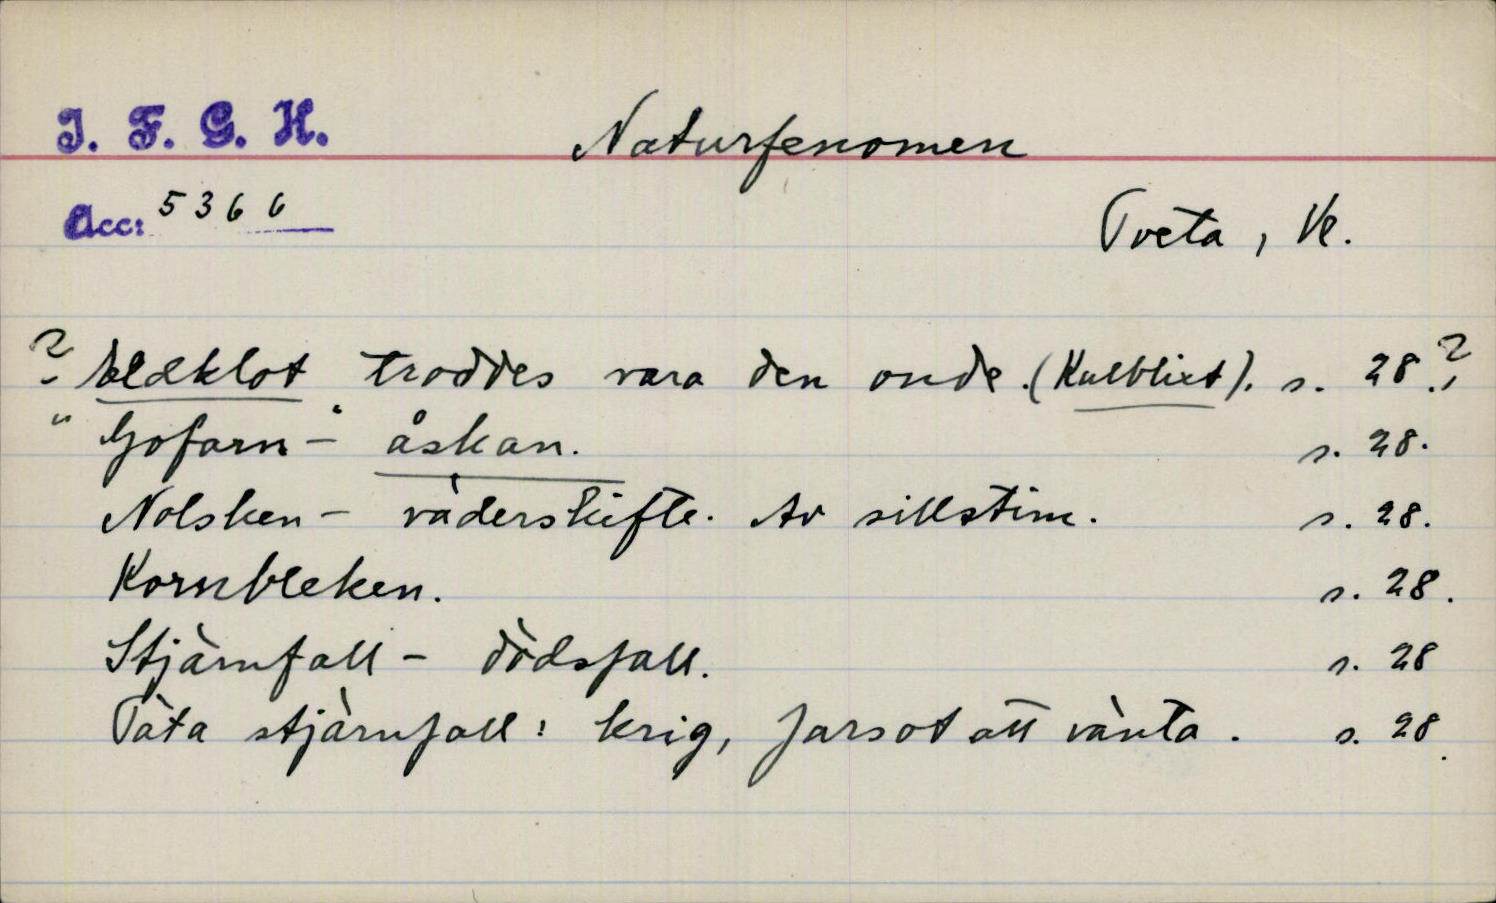 I. F. G. H.
Naturfenomen
Acc: 5366
Tveta, Vr.
? Eldklot troddes vara den onde. (Kulblixt). s. 28.?
"Gofarn-" åskan. s. 28.
Nolsken - väderskifte. Av sillstim. s. 28.
Kornbleken. s. 28.
Stjärnfall - dödsfall. s. 28
Täta stjärnfall: krig, farsot att vänta. s. 28.